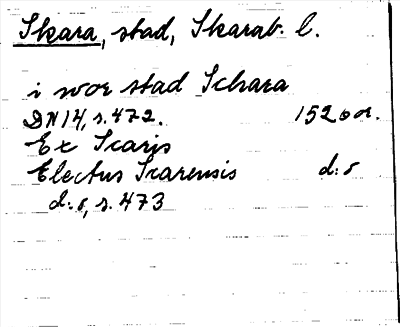 Skara, stad, Skarab. l.
i wor stad Schara
DN 14, s. 472. 1520 or.
Ex Scaris
Electus Scarensis d:o
d.o, s. 473